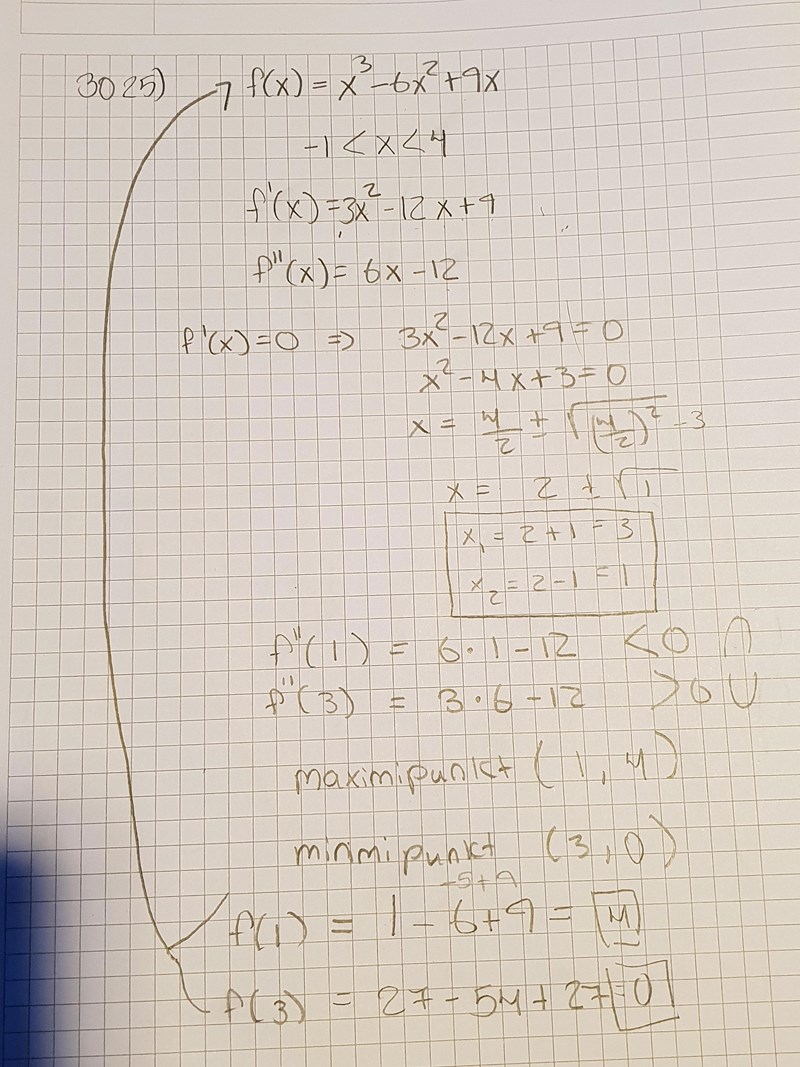 3025) f(x) = x³ - 6x² + 9x
-1 < x < 4
f'(x) = 3x² - 12x + 9
f''(x) = 6x - 12
f'(x) = 0 ⇒ 3x² - 12x + 9 = 0
x² - 4x + 3 = 0
x = 4/2 ± √(4/2)² - 3
x = 2 ± √1
x₁ = 2 + 1 = 3
x₂ = 2 - 1 = 1
f''(1) = 6·1 - 12 < 0 ∩
f''(3) = 3·6 - 12 > 0 ∪
maximipunkt (1, 4)
minmipunkt (3, 0)
-5+9
f(1) = 1 - 6 + 9 = 4
f(3) = 27 - 54 + 27 = 0